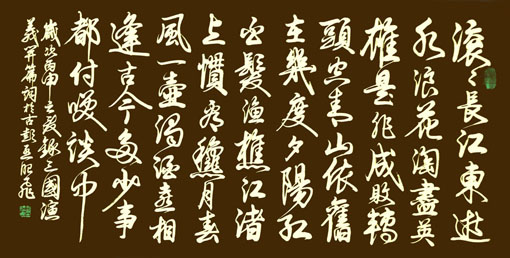 滚〻長江東逝
水浪花淘盡英
雄是非成敗轉
頭空青山依舊
在幾度夕陽紅
白髮漁樵江渚
上慣看龝月春
風一壺濁酒喜相
逢古今多少事
都付笑談中
歲次丙申之夏錄三國演
義開篇詞於古彭